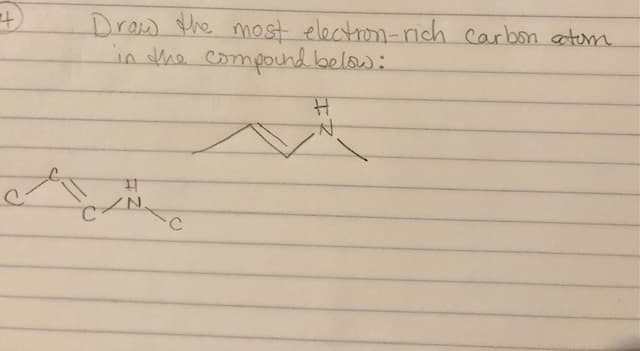 4)
Draw the most electron-rich carbon atom
in the compound below:
H
N
C
H
C
C N
C